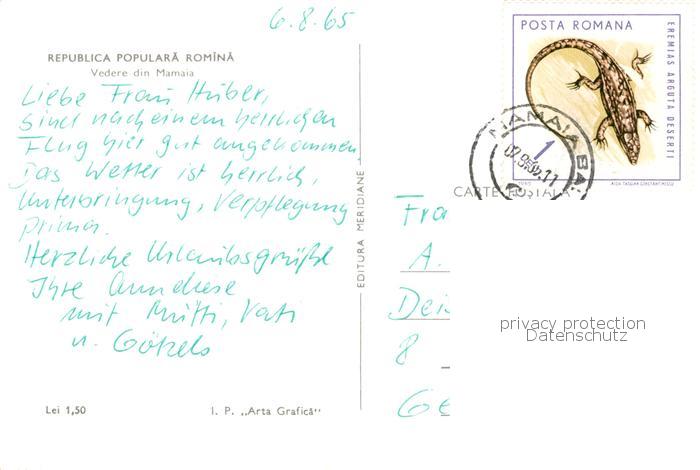 6.8.65
REPUBLICA POPULARĂ ROMÎNĂ
Vedere din Mamaia
Liebe Frau Huber,
sind nach einem herrlichen
Flug hier gut angekommen
Das Wetter ist herrlich,
Unterbringung, Verpflegung
prima.
Herzliche Urlaubsgrüße
Ihre Anneliese
mit Mutti, Vati
u. Götzels
Lei 1,50
I. P. „Arta Grafică"
EDITURA MERIDIANE
POSTA ROMANA
EREMIAS ARGUTA DESERTI
1
MAMAIA
CARTE POȘTALĂ
Fra
A.
Dei
8
Ge
privacy protection
Datenschutz